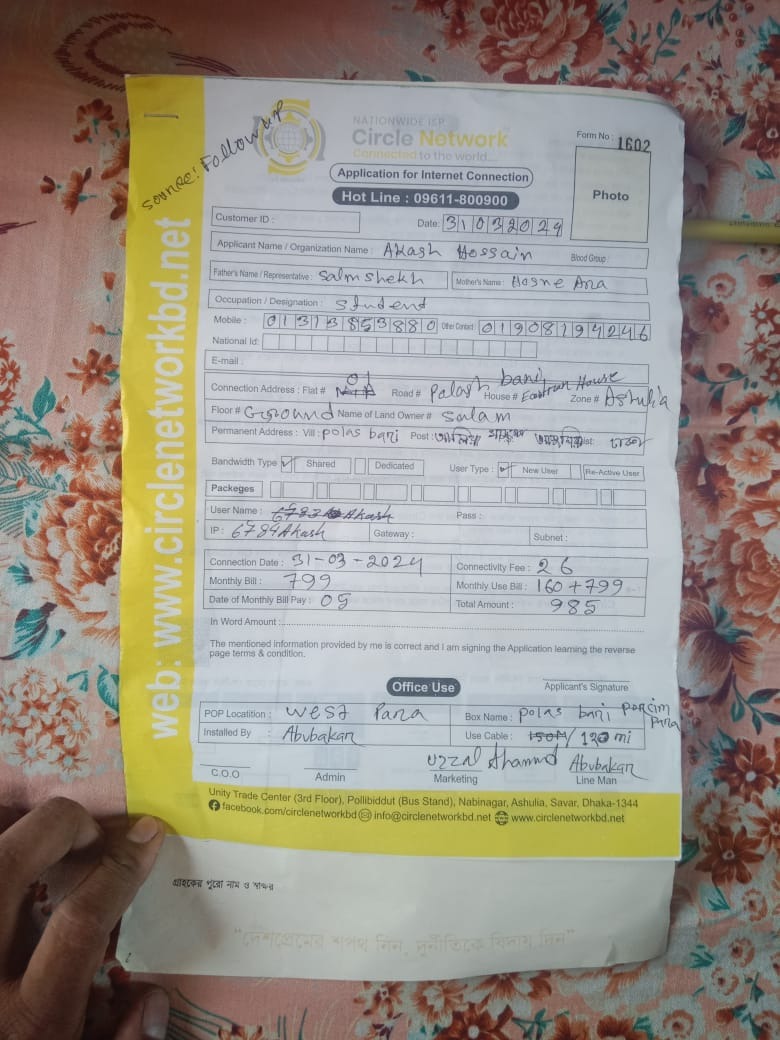 source: Follow up
NATIONWIDE ISP
Circle Network
Connected to the world...
Form No : 1602
Application for Internet Connection
Hot Line : 09611-800900
Photo
Customer ID :
Date: 31032024
Applicant Name / Organization Name : Akash Hossain Blood Group :
Father's Name / Representative : Salm shekh Mother's Name : Hosne Ara
Occupation / Designation : Student
Mobile : 01313853880 Other Contact : 01908194246
National Id:
E-mail :
Connection Address : Flat # 01 Road # Palash bari House # Eastran House Zone # Ashulia
Floor # Ground Name of Land Owner # Salam
Permanent Address : Vill : polas bari Post : Dist: ঢাকা
Bandwidth Type ✓ Shared Dedicated User Type : ✓ New User Re-Active User
Packeges
User Name : Akash Pass :
IP : 6784Akash Gateway : Subnet :
Connection Date : 31-03-2024 Connectivity Fee : 26
Monthly Bill : 799 Monthly Use Bill : 160+799
Date of Monthly Bill Pay : 05 Total Amount : 985
In Word Amount :
The mentioned information provided by me is correct and I am signing the Application learning the reverse
page terms & condition.
Applicant's Signature
Office Use
POP Locatition : West Para Box Name : polas bari porcim para
Installed By : Abubakar Use Cable : 150M/ 120 mi
Uzzal Ahammd Abubakar
C.O.O Admin Marketing Line Man
Unity Trade Center (3rd Floor), Pollibiddut (Bus Stand), Nabinagar, Ashulia, Savar, Dhaka-1344
facebook.com/circlenetworkbd info@circlenetworkbd.net www.circlenetworkbd.net
web: www.circlenetworkbd.net
গ্রাহকের পুরো নাম ও স্বাক্ষর
"দেশপ্রেমের শপথ নিন, দুর্নীতিকে বিদায় দিন"